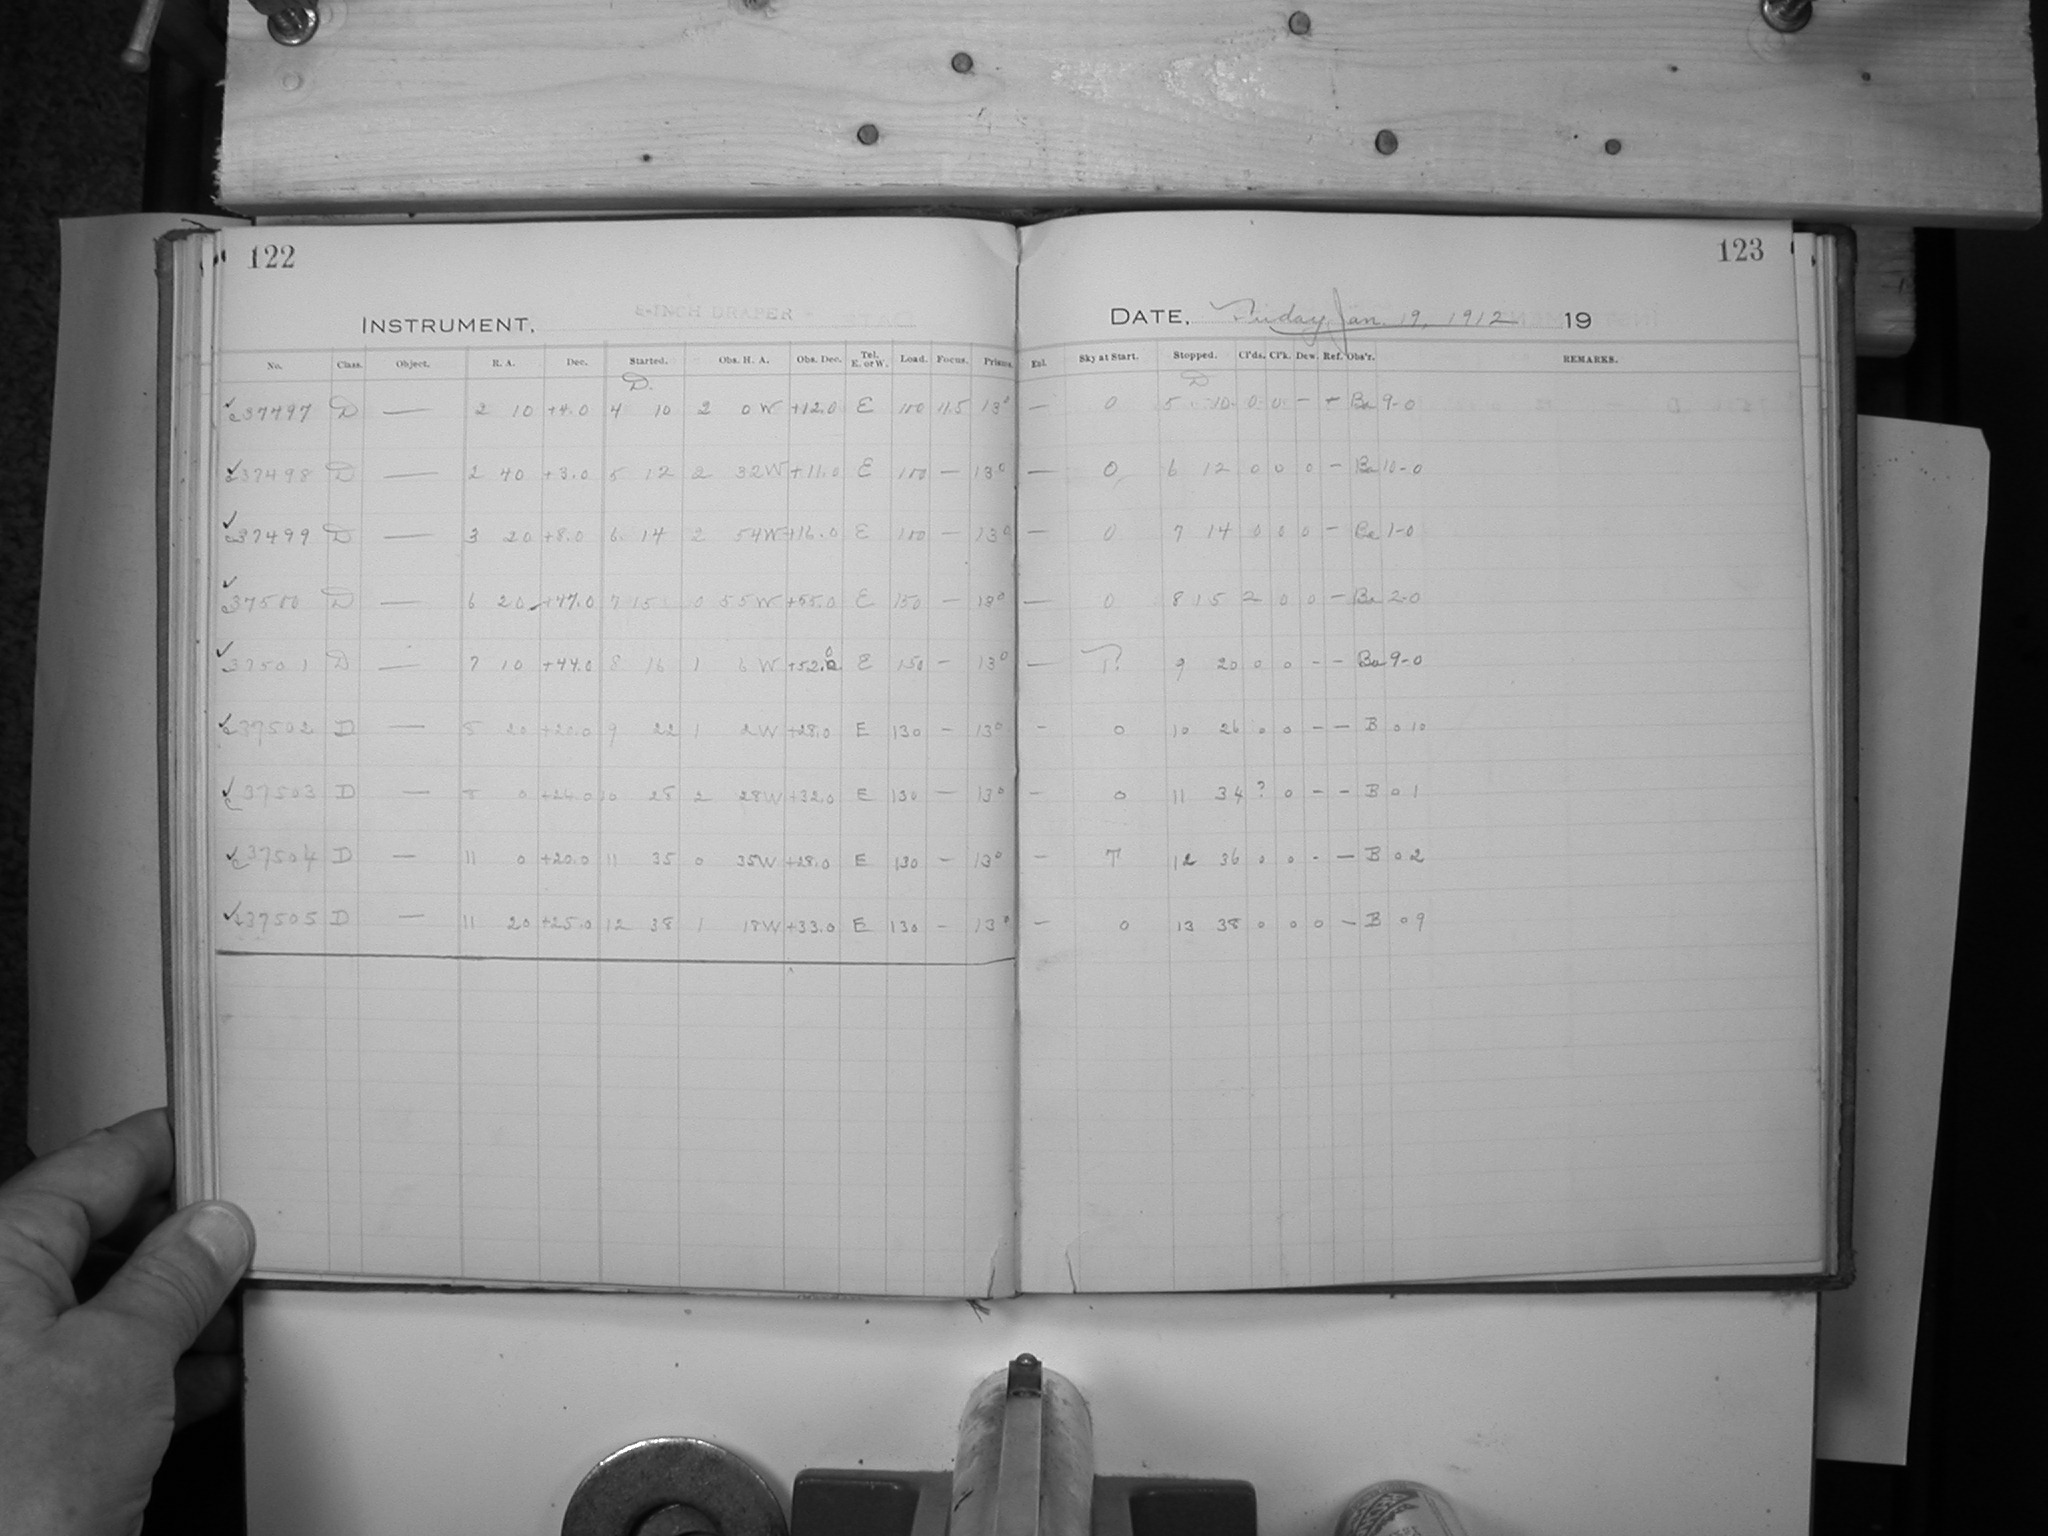 122
INSTRUMENT, 8-INCH DRAPER
No. Class. Object. R. A. Dec. Started. Obs. H. A. Obs. Dec. Tel. E. or W. Load. Focus. Prisms.
D.
✓ c37497 D — 2 10 +4.0 4 10 2 0 W +12.0 E 100 11.5 13°
✓ c37498 D — 2 40 +3.0 5 12 2 32 W +11.0 E 100 — 13°
✓ c37499 D — 3 20 +8.0 6 14 2 54 W +16.0 E 100 — 13°
✓ c37500 D — 6 20 +47.0 7 15 0 55 W +55.0 E 150 — 13°
✓ 37501 D — 7 10 +44.0 8 16 1 6 W +52.0 E 150 — 13°
✓ c37502 D — 8 20 +20.0 9 22 1 2 W +28.0 E 130 — 13°
✓ c37503 D — 8 0 +24.0 10 28 2 28 W +32.0 E 130 — 13°
✓ c37504 D — 11 0 +20.0 11 35 0 35 W +28.0 E 130 — 13°
✓ c37505 D — 11 20 +25.0 12 38 1 18 W +33.0 E 130 — 13°
123
DATE, Friday, Jan. 19, 1912 19
Enl. Sky at Start. Stopped. Cl'ds. Cl'k. Dew. Ref. Obs'r. REMARKS.
D
— 0 5 10 0 0 — — Ba 9-0
— 0 6 12 0 0 0 — Ba 10-0
— 0 7 14 0 0 0 — Ba 1-0
— 0 8 15 2 0 0 — Ba 2-0
— T. 9 20 0 0 — — Ba 9-0
— 0 10 26 0 0 — — B 0 10
— 0 11 34 ? 0 — — B 0 1
— T 12 36 0 0 - — B 0 2
— 0 13 38 0 0 0 — B 0 9